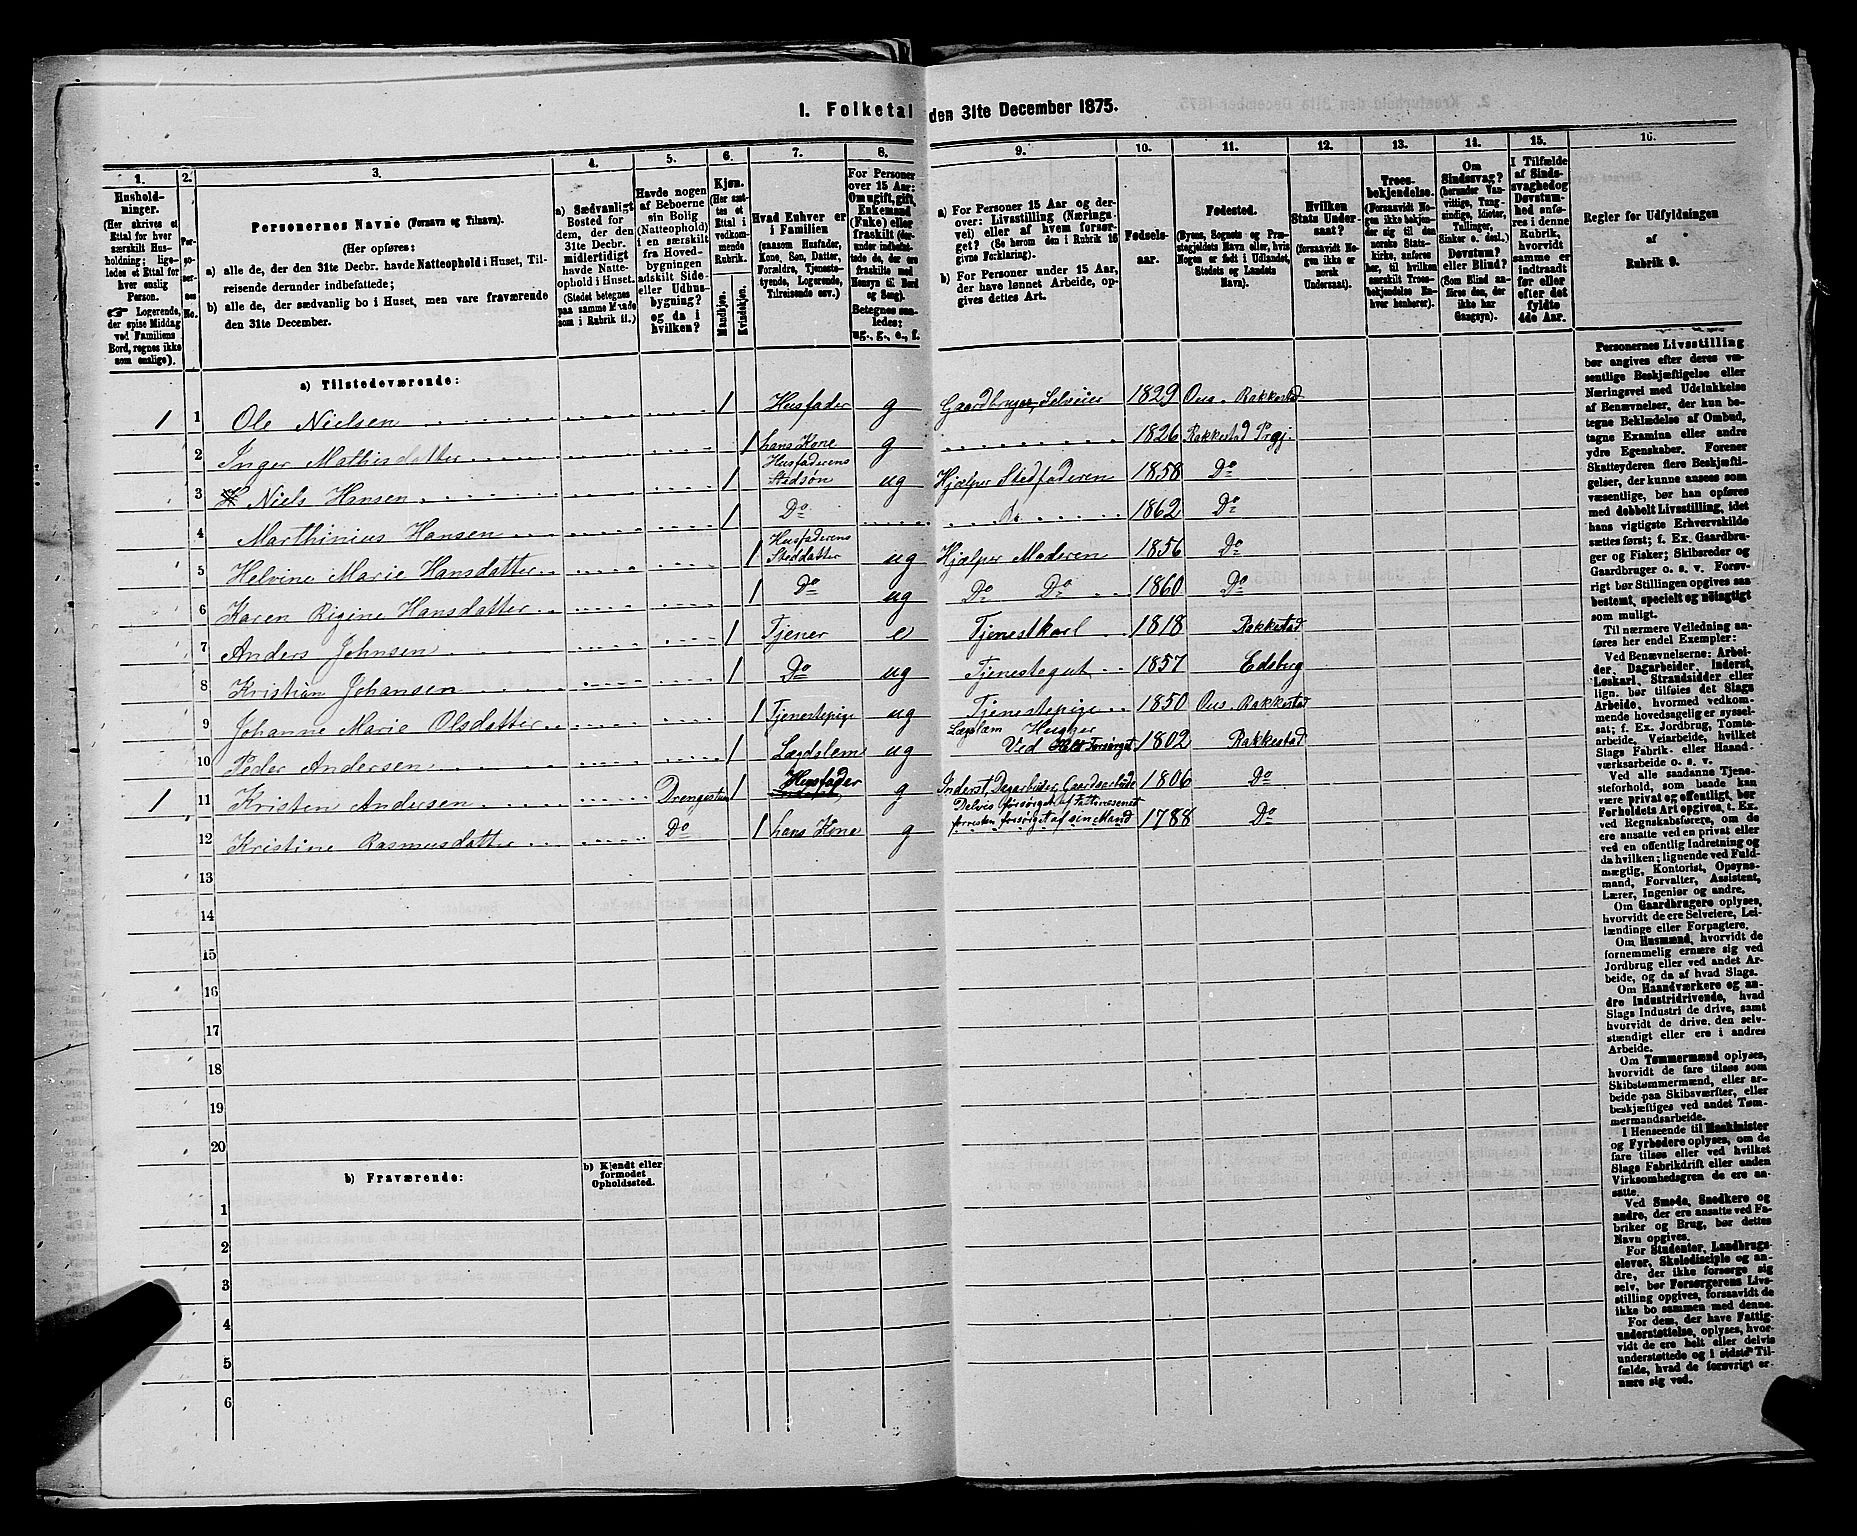 1. Folketal den 31te December 1875.
1. 2. 3. 4. 5. 6. 7. 8. 9. 10. 11. 12. 13. 14. 15. 16.
Hushold-
ninger.
(Her skrives et
Ettal for hver
særskilt Hus-
holdning; lige-
ledes et Ettal for
hver enslig
Person.
☞ Logerende,
der spise Middag
ved Familiens
Bord, regnes ikke
som enslige).
Personernes Navne (Fornavn og Tilnavn).
(Her opføres;
a) alle de, der den 31te Decbr. havde Natteophold i Huset, Til-
reisende derunder indbefattede;
b) alle de, der sædvanlig bo i Huset, men vare fraværende
den 31te December.
a) Sædvanligt
Bosted for
dem, der den
31te Decbr.
midlertidigt
havde Natte-
ophold i Huset.
(Stedet betegnes
paa samme Maade
som i Rubrik 11.)
Havde nogen
af Beboerne
sin Bolig
(Natteophold)
i en særskilt
fra Hoved-
bygningen
adskilt Side-
eller Udhus-
bygning?
og da i
hvilken?
Kjøn.
(Her sæt-
tes et
Ettal i
vedkom-
mende
Rubrik.
Mandkjøn.
Kvindekjøn.
Hvad Enhver er
i Familien
(saasom Husfader,
Kone, Søn, Datter,
Forældre, Tjeneste-
tyende, Logerende,
Tilreisende osv.)
For Personer
over 15 Aar:
Om ugift, gift,
Enkemand
(Enke) eller
fraskilt
Betegnes saa-
ledes:
ug., g., e., f.
a) For Personer 15 Aar og der-
over: Livsstilling (Nærings-
vei) eller af hvem forsør-
get? (Se herom den i Rubrik 16
givne Forklaring).
b) For Personer under 15 Aar,
der have lønnet Arbeide, op-
gives dettes Art.
Fødsels-
aar.
Fødested.
(Byens, Sognets og Præ-
stegjeldets Navn eller, hvis
Nogen er født i Udlandet,
Stedets og Landets
Navn).
Hvilken
Stats Under-
saat?
(forsaavidt No-
gen ikke er
norsk
Undersaat).
Troes-
bekjendelse.
(Forsaavidt No-
gen ikke bekjen-
der sig til den
norske Stats-
kirke, anføres
her, til hvilken
særskilt Troes-
bekjendelse En-
hver henhører).
Om
Sindssvag?
(herunder Van-
vittige, Tung-
sindige, Idioter,
Tullinger,
Sinker o. desl.)
Døvstum?
eller Blind?
(Som Blind an-
føres den, der
ikke har
Gangsyn).
I Tilfælde
af Sinds-
svaghed og
Døvstum-
hed anfø-
res i denne
Rubrik,
hvorvidt
samme er
indtraadt
før eller
efter det
fyldte
4de Aar.
Regler for Udfyldningen
af
Rubrik 9.
a) Tilstedeværende:
1 1 Ole Nielsen 1 Husfader g Gaardbruger, Selveier 1829 Ous. Rakkestad
2 Inger Mathisdatter 1 hans Kone g 1826 Rakkestad Prgj.
3 Niels Hansen 1 Husfaderens Stedsøn ug Hjælper Stedfaderen 1858 Do
4 Marthinius Hansen 1 Do Do 1862 Do
5 Helvine Marie Hansdatter 1 Husfaderens Steddatter ug Hjælper Moderen 1856 Do
6 Karen Rigine Hansdatter 1 Do ug Do Do 1860 Do
7 Anders Johnsen 1 Tjener e Tjenestkarl 1818 Rakkestad
8 Kristian Johansen 1 Do ug Tjenestegut 1857 Edsberg
9 Johanne Marie Olsdatter 1 Tjenestepige ug Tjenestepige 1850 Ous. Rakkestad
10 Peder Andersen 1 Lægdslem ug Lægslæm Hugger Ved Helt Forsørget 1802 Rakkestad
1 11 Kristen Andersen Drengestuen 1 Husfader g Inderst, Dagarbeider, Gaardsarbeide 1806 Do
12 Kristine Rasmusdatter Do 1 hans Kone g Delvis forsørget af Fattivæsenet forresten forsørget af sin Mand 1788 Do
13
14
15
16
17
18
19
20
b) Fraværende:
b) Kjendt eller
formodet
Opholdssted.
1
2
3
4
5
6
Personernes Livsstilling
bør angives efter deres væ-
sentlige Beskjæftigelse eller
Næringsvei med Udelukkelse
af Benævnelser, der kun be-
tegne Beklædelse af Ombud,
tagne Examina eller andre
ydre Egenskaber. Forener
Skatteyderen flere Beskjæfti-
gelser, der kunne ansees som
væsentlige, bør han opføres
med dobbelt Livsstilling, idet
hans vigtigste Erhvervskilde
sættes først; f. Ex. Gaardbru-
ger og Fisker; Skibsreder og
Gaardbruger o. s. v. Forøv-
rigt bør Stillingen opgives saa
bestemt, specielt og nøiagtigt
som muligt.
Til nærmere Veiledning an-
føres her endel Exempler:
Ved Benævnelserne: Arbei-
der, Dagarbeider, Inderst,
Løskarl, Strandsidder eller
lign. bør tilføies det Slags
Arbeide, hvormed vedkom-
mende hovedsagelig er syssel-
sat; f. Ex. Jordbrug, Tomte-
arbeide, Veiarbeide, hvilket
Slags Fabrik- eller Haand-
værksarbeide o. s. v.
Ved alle saadanne Tjene-
steforhold, som baade kan
være privat og offentligt, bør
Forholdets Art opgives, t. Ex.
ved Regnskabsførere, om de
ere ansatte ved en privat eller
ved en offentlig Indretning og
da hvilken; lignende ved Fuld-
mægtig, Kontorist, Opsyns-
mand, Forvalter, Assistent,
Lærer, Ingeniør og andre.
Om Gaardbrugere oplyses,
hvorvidt de ere Selveiere, Lei-
lændinge eller Forpagtere.
Om Husmænd, hvorvidt de
fornemmelig ernære sig ved
Jordbrug eller ved andet Ar-
beide, og da af hvad Slags.
Om Haandværkere og an-
dre Industridrivende, hvad
Slags Industri de drive, samt
hvorvidt de drive den selv-
stændigt eller ere i andres
Arbeide.
Om Tømmermænd oplyses,
hvorvidt de fare tilsøs som
Skibstømmermænd, eller ar-
beide paa Skibsværfter, eller
beskjæftiges ved andet Tøm-
mermandsarbeide.
I Henseende til Maskinister
og Fyrbødere oplyses, om de
fare tilsøs eller ved hvilket
Slags Fabrikdrift eller anden
Virksomhedsgren de ere an-
satte.
Ved Smede, Snedkere og
andre, der ere ansatte ved Fa-
briker og Brug, bør dettes
Navn opgives.
For Studenter, Landbrugs-
elever, Skoledisciple og an-
dre, der ikke forsørge sig
selv, bør Forsørgerens Livs-
stilling opgives, forsaavidt de
ikke bo sammen med denne.
For dem, der have Fattig-
understøttelse, oplyses, hvor-
vidt de ere helt eller delvis
understøttede og i sidste Til-
fælde, hvad de forøvrigt er-
nære sig ved.